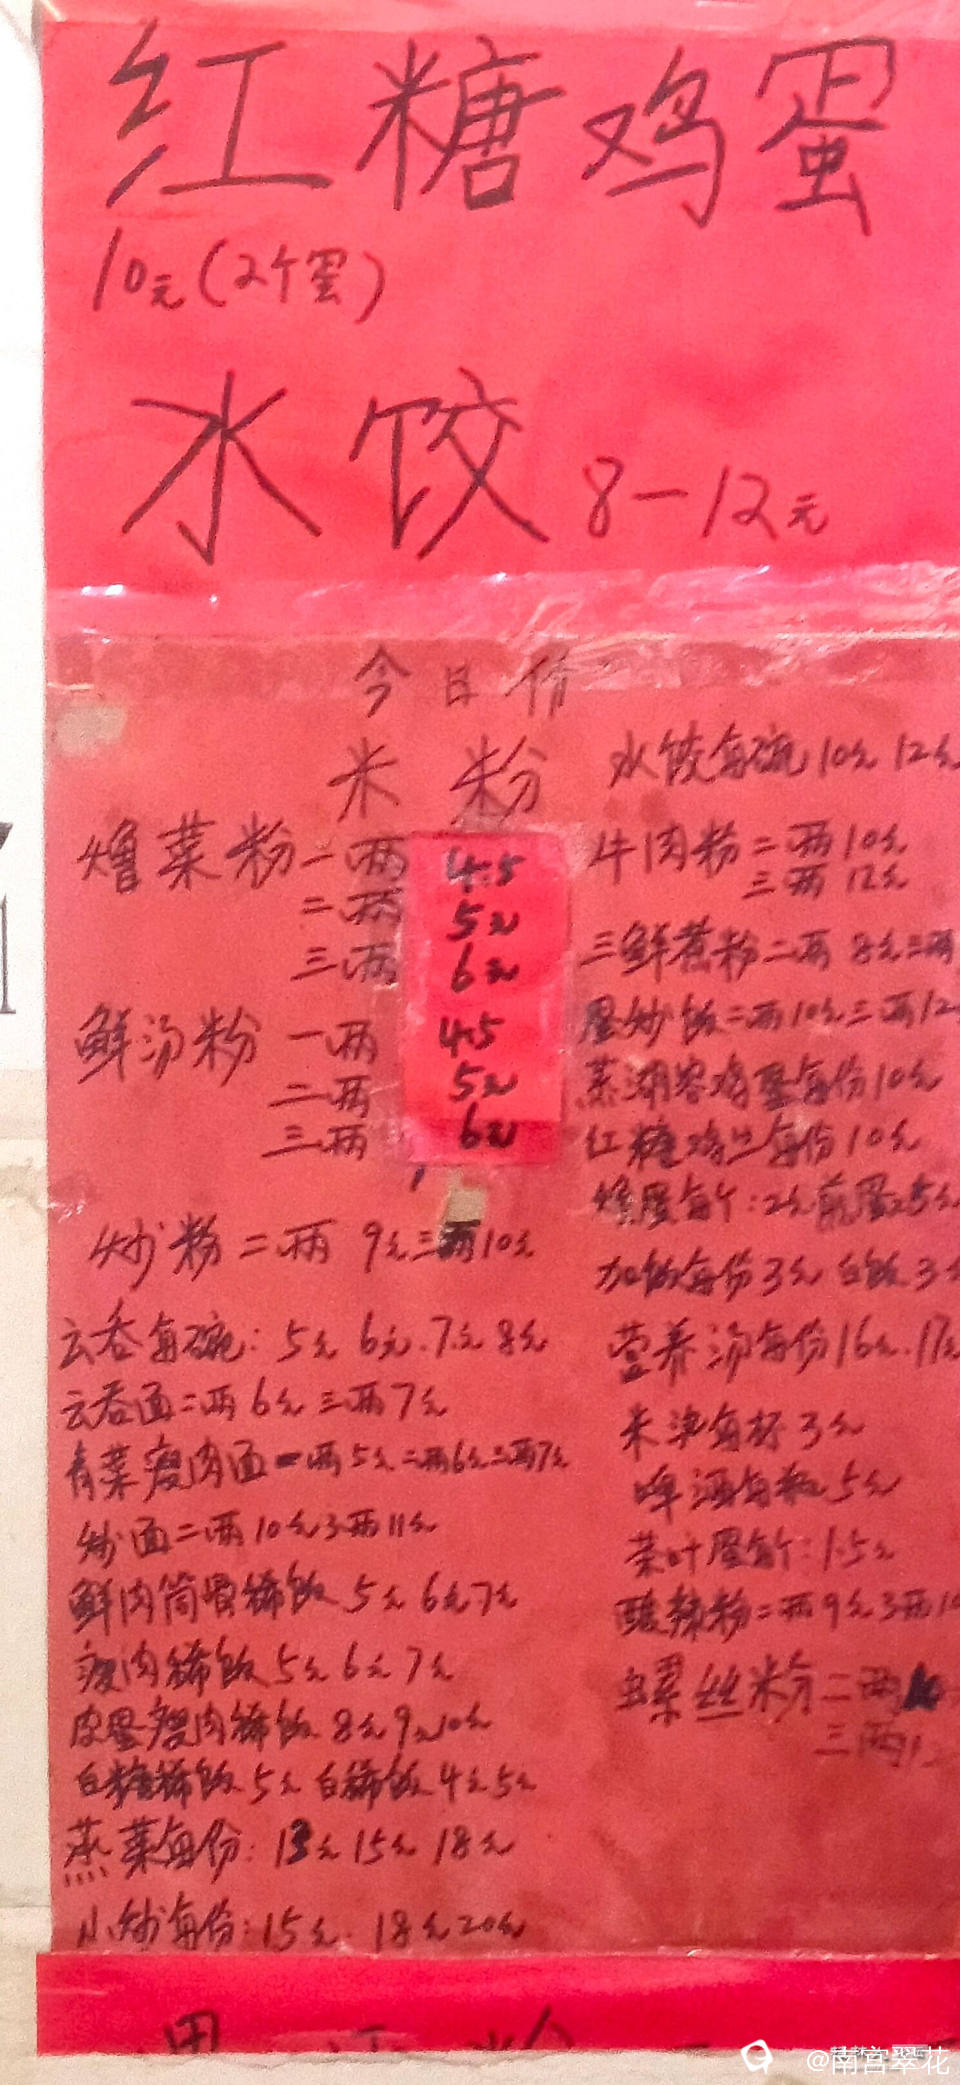 红糖鸡蛋
10元(2个蛋)
水饺 8-12元
今日份
米粉
烩菜粉一两 4.5
二两 5元
三两 6元
鲜汤粉 一两 4.5
二两 5元
三两 6元
炒粉二两 9元三两10元
云吞每碗: 5元 6元.7元8元
云吞面二两6元 三两7元
青菜瘦肉面一两5元二两6元三两7元
炒面二两10元3两11元
鲜肉筒骨稀饭 5元 6元7元
瘦肉稀饭5元6元7元
皮蛋瘦肉稀饭 8元9元10元
白糖稀饭5元 白稀饭4元5元
蒸菜每份: 13元15元 18元
小炒每份:15元. 18元20元
水饺每碗10元 12元
牛肉粉二两10元
三两 12元
三鲜煮粉二两 8元三两
蛋炒饭二两10元三两12
蒸湖容鸡蛋每份10元
红糖鸡旦每份10元
每个:2元煎蛋2.5元
加饭每份3元 白饭3元
营养汤每份16元.17元
米津每杯3元
啤酒每瓶5元
茶叶蛋每个:1.5元
酸辣粉二两9元3两10
螺丝粉二两
三两1
@南宫翠花